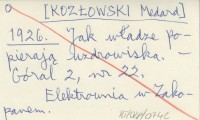 [KOZŁOWSKI Medard]
1926. Jak władze po-
pierają uzdrowiska. —
Góral 2, nr 22.
Elektrownia w Zako-
panem.